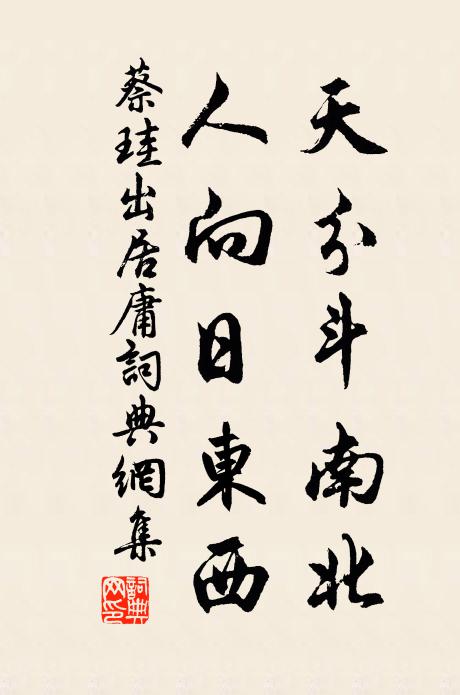 天分斗南北
人向日東西
蔡珪出居庸詞典網集
詞典網印